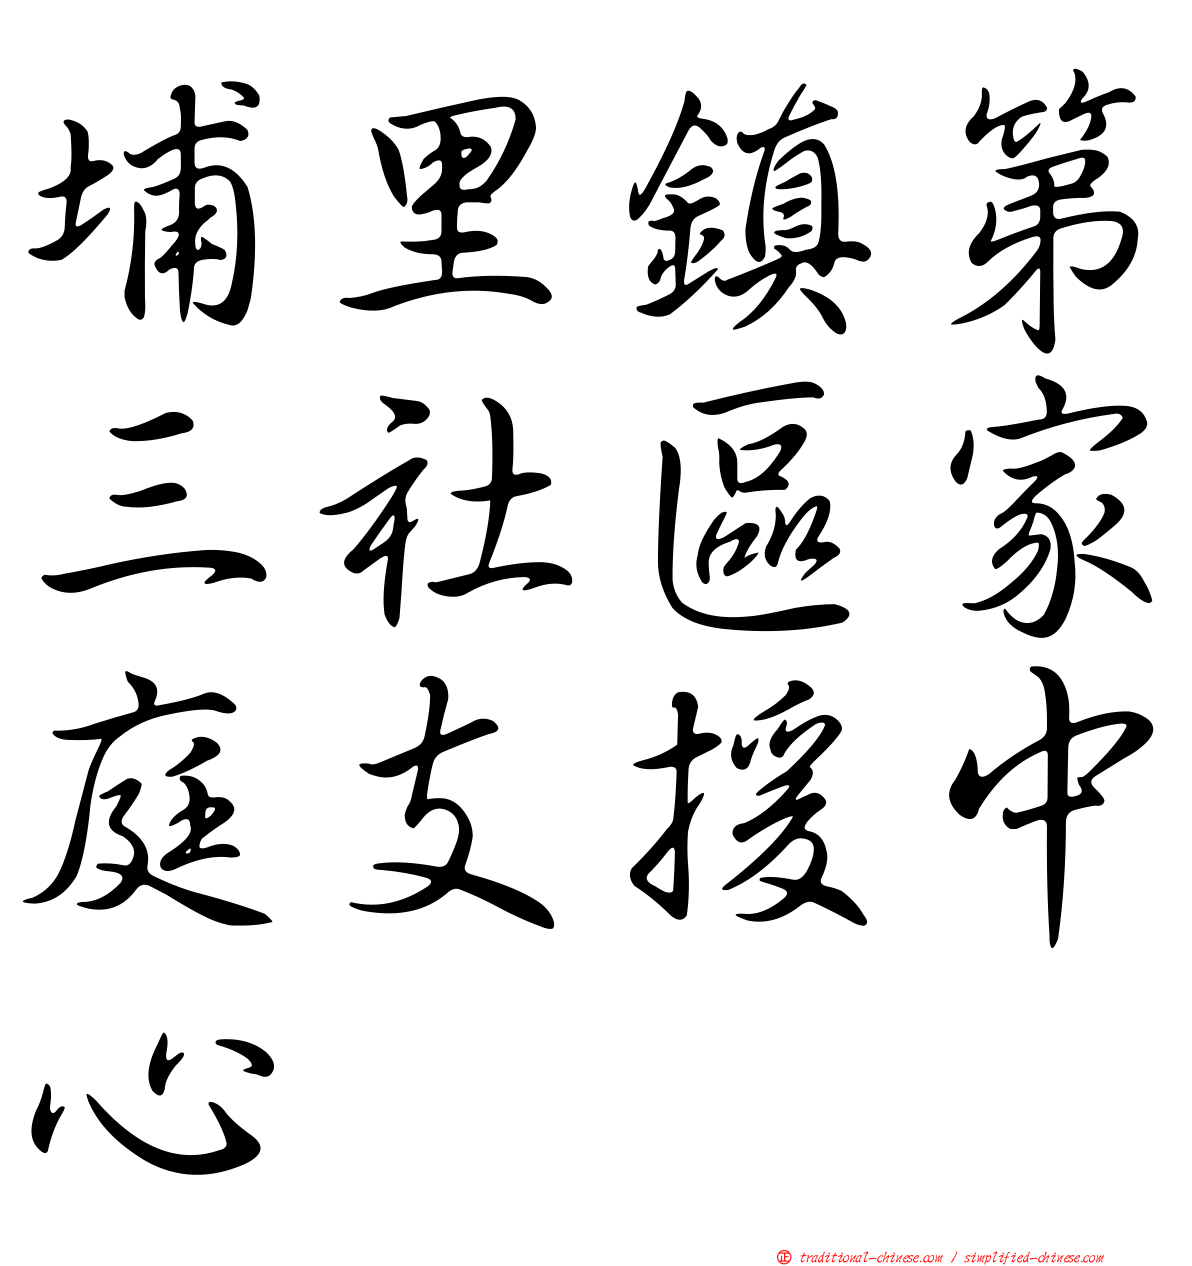 埔里鎮第
三社區家
庭支援中
心
正 traditional-chinese.com / simplified-chinese.com